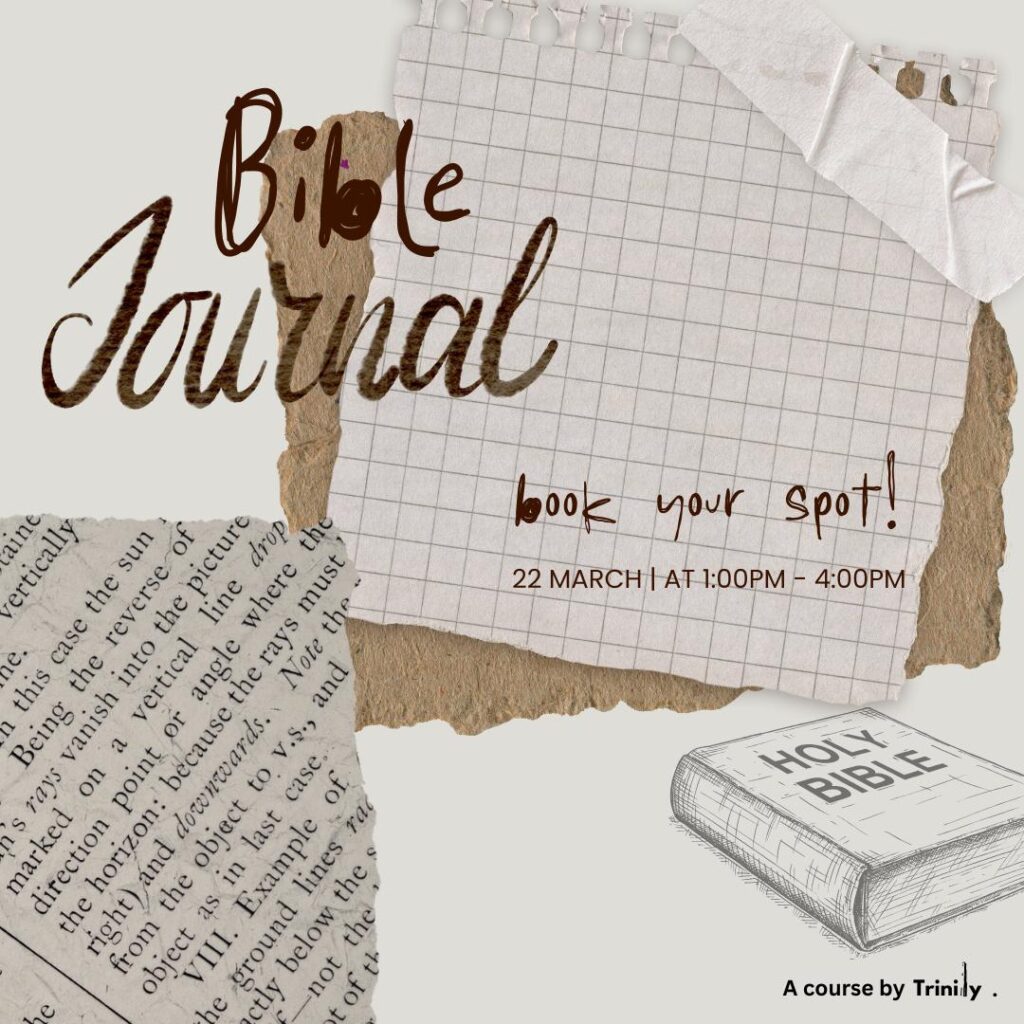 Bible
Journal
book your spot!
22 MARCH | AT 1:00PM - 4:00PM
vertically
this case the sun
Being the reverse of
rays vanish into the picture
marked on a vertical line drop
direction point or angle where the
the horizon: because the rays must
right) and downwards. Note the
from the object to v.s., and
object as in last case,
VIII. Example of
the ground lines
below the
—not the
of
HOLY
BIBLE
A course by Trinity .